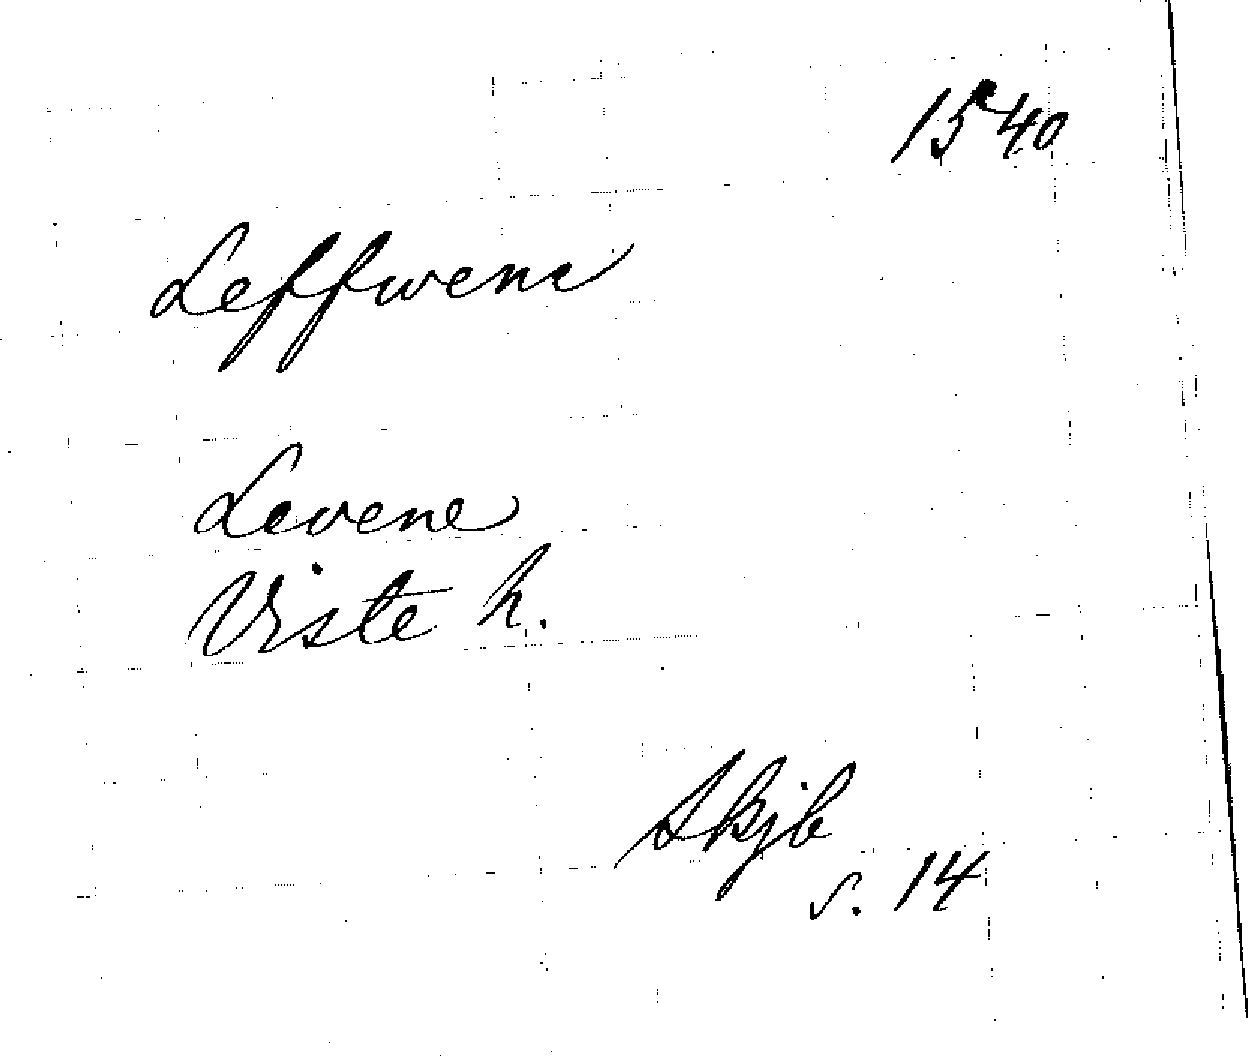 1540
Leffwene
Levene
Viste h.
Skjb
s. 14